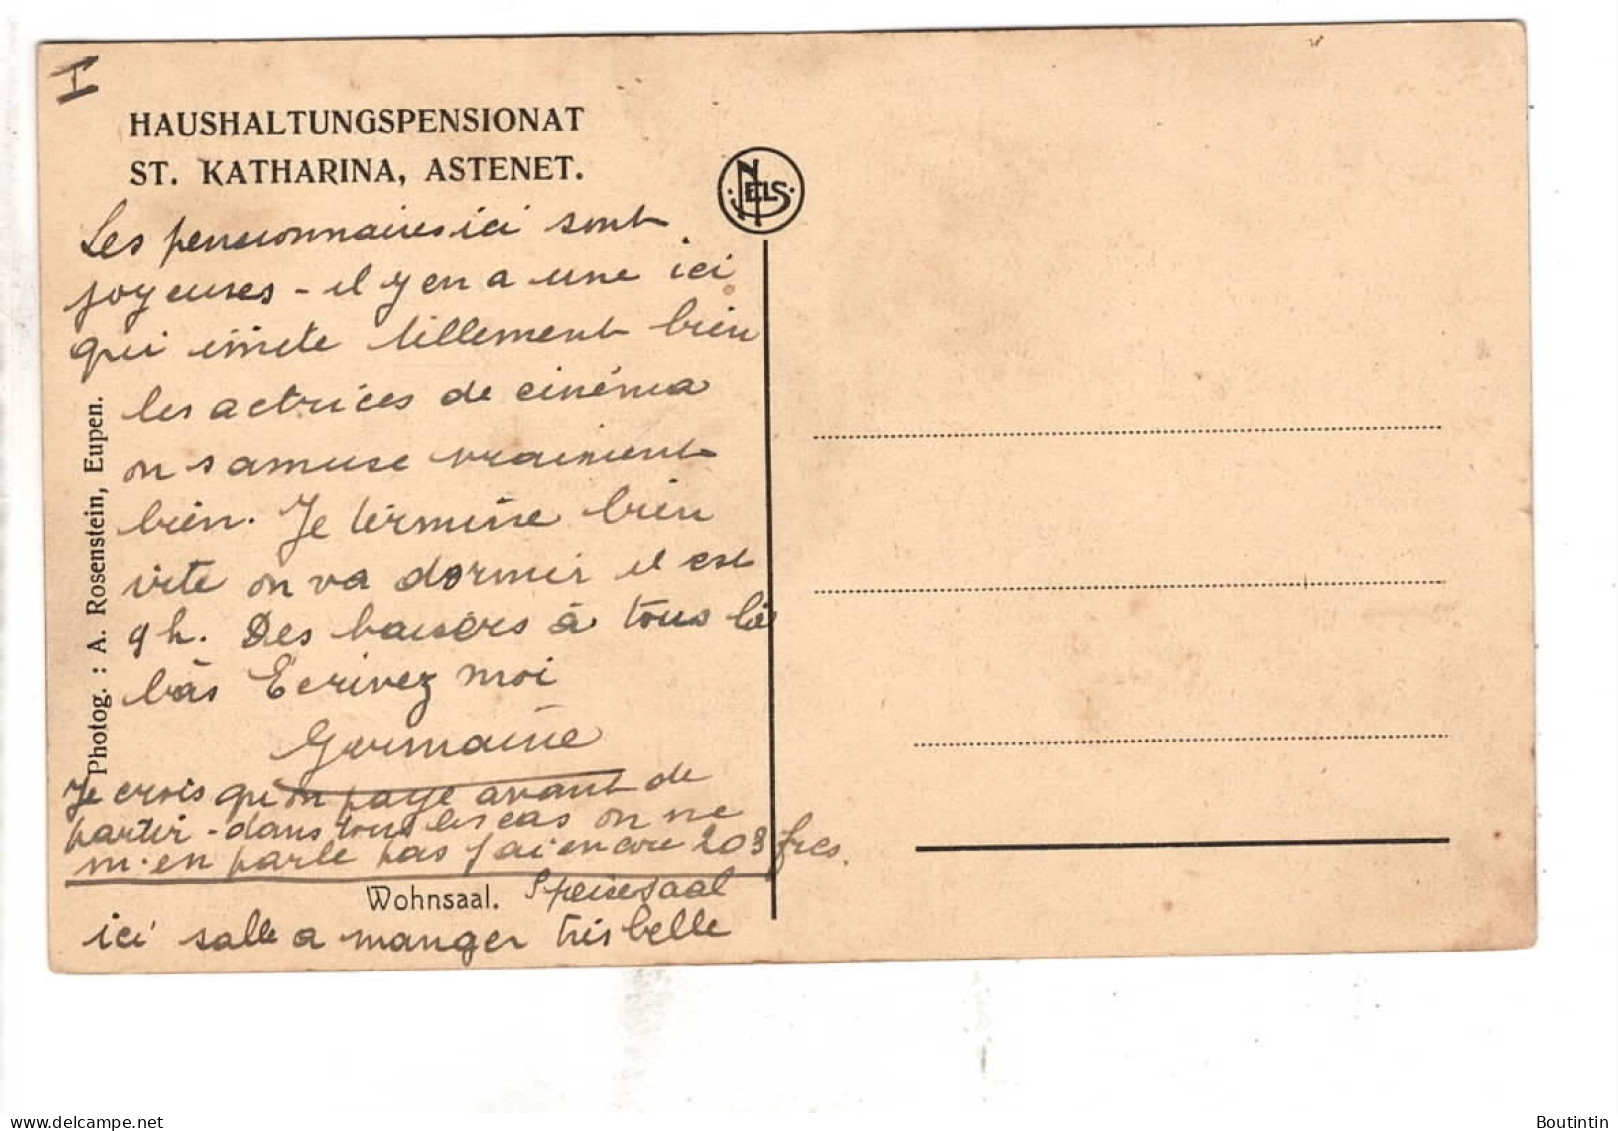 I
HAUSHALTUNGSPENSIONAT
ST. KATHARINA, ASTENET.
NELS
Les pensionnaires ici sont
joyeuses - il y en a une ici
qui imite tillement bien
les actrices de cinéma
on s amuse vraiment
bien. Je termine bien
vite on va dormir il est
9 h. Des baisers à tous là
bàs Ecrivez moi
Germaine
Je crois qu'on paye avant de
partir - dans tous les cas on ne
m'en parle pas j'ai encore 203 frcs.
Wohnsaal. Speisesaal
ici salle a manger très belle
Photog. : A. Rosenstein, Eupen.
delcampe.net
Boutintin